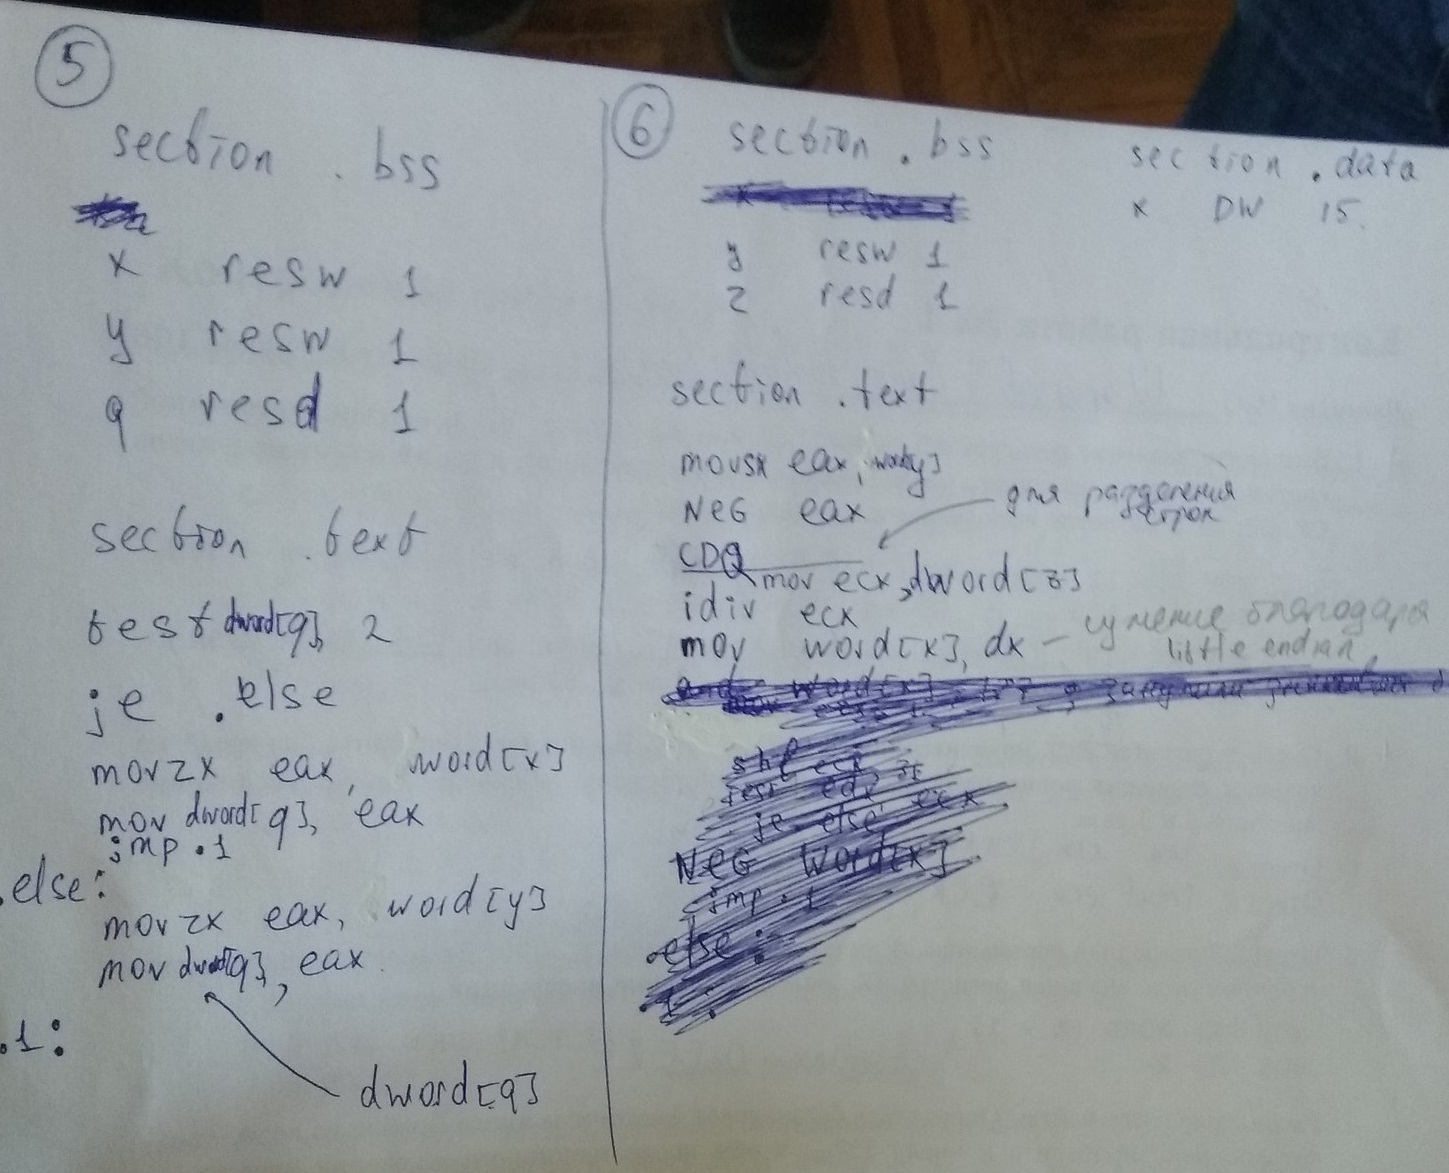 5
section .bss
x resw 1
y resw 1
q resd 1
section .text
test dword[q], 2
je .else
movzx eax, word[x]
mov dword[q], eax
jmp .1
.else:
movzx eax, word[y]
mov dword[q], eax
.1:
dword[q]
6
section .bss
y resw 1
z resd 1
section .data
x DW 15
section .text
movsx eax, word[y]
NEG eax
для разделения
строк
CDQ
mov ecx, dword[z]
idiv ecx
mov word[x], dx – благодаря
little endian
NEG word[x]
jmp .1
.else: